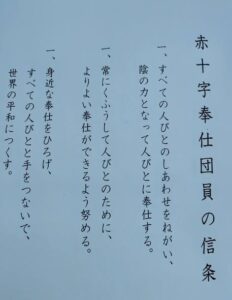 赤十字奉仕団員の信条
一、すべての人びとのしあわせをねがい、
陰の力となって人びとに奉仕する。
一、常にくふうして人びとのために、
よりよい奉仕ができるよう努める。
一、身近な奉仕をひろげ、
すべての人びとと手をつないで、
世界の平和につくす。